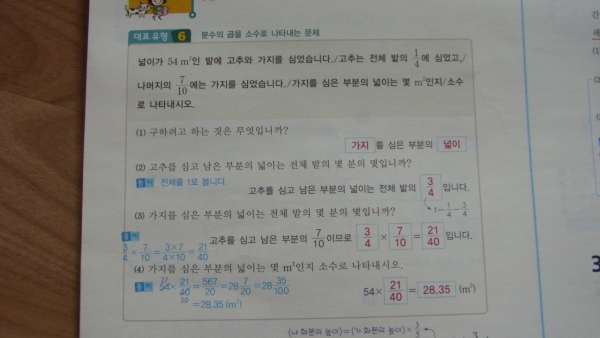 대표 유형 6 분수의 곱을 소수로 나타내는 문제
넓이가 54 m²인 밭에 고추와 가지를 심었습니다./고추는 전체 밭의 1/4에 심었고,/
나머지의 7/10에는 가지를 심었습니다./가지를 심은 부분의 넓이는 몇 m²인지/소수
로 나타내시오.
(1) 구하려고 하는 것은 무엇입니까?
가지 를 심은 부분의 넓이
(2) 고추를 심고 남은 부분의 넓이는 전체 밭의 몇 분의 몇입니까?
풀이 전체를 1로 봅니다.
고추를 심고 남은 부분의 넓이는 전체 밭의 3/4 입니다.
1-1/4=3/4
(3) 가지를 심은 부분의 넓이는 전체 밭의 몇 분의 몇입니까?
풀이
3/4×7/10=3×7/4×10=21/40
고추를 심고 남은 부분의 7/10이므로 3/4 × 7/10 = 21/40 입니다.
(4) 가지를 심은 부분의 넓이는 몇 m²인지 소수로 나타내시오.
풀이 54×21/40=567/20=28 7/20=28 35/100
27
20
=28.35 (m²)
54× 21/40 = 28.35 (m²)
(나 화분의 높이)=(가 화분의 높이)×